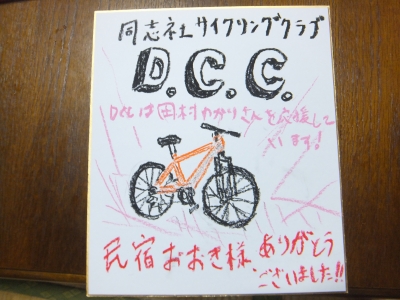 同志社サイクリングクラブ
D.C.C.
DCCは田村ゆかりさんを応援して
います!
民宿おおき様 ありがとう
ございました!!